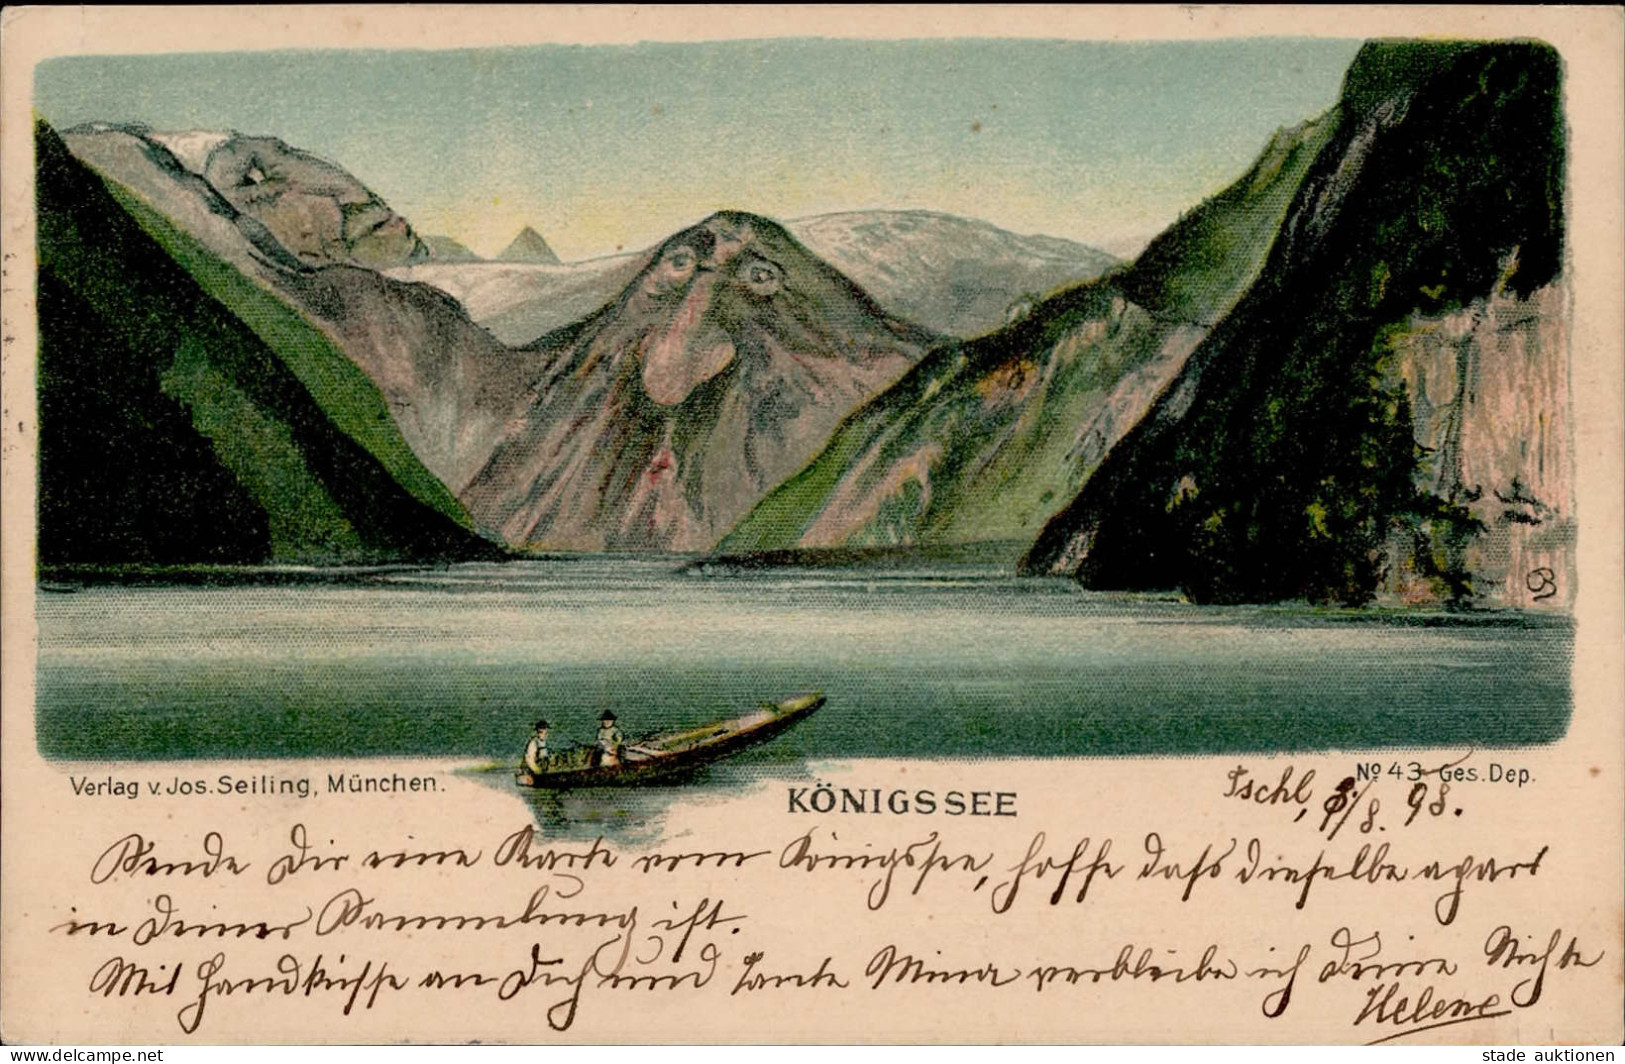 Verlag v. Jos. Seiling, München.
KÖNIGSSEE
No 43 Ges. Dep.
Ischl, 8/8. 98.
Sende Dir eine Karte vom Königssee, hoffe dass dieselbe apart
in Deiner Sammlung ist.
Mit Handküsse an Dich und Tante Mina verbleibe ich Deine Nichte
Helene
stade auktionen
www.delcampe.net/de/stade-auktionen